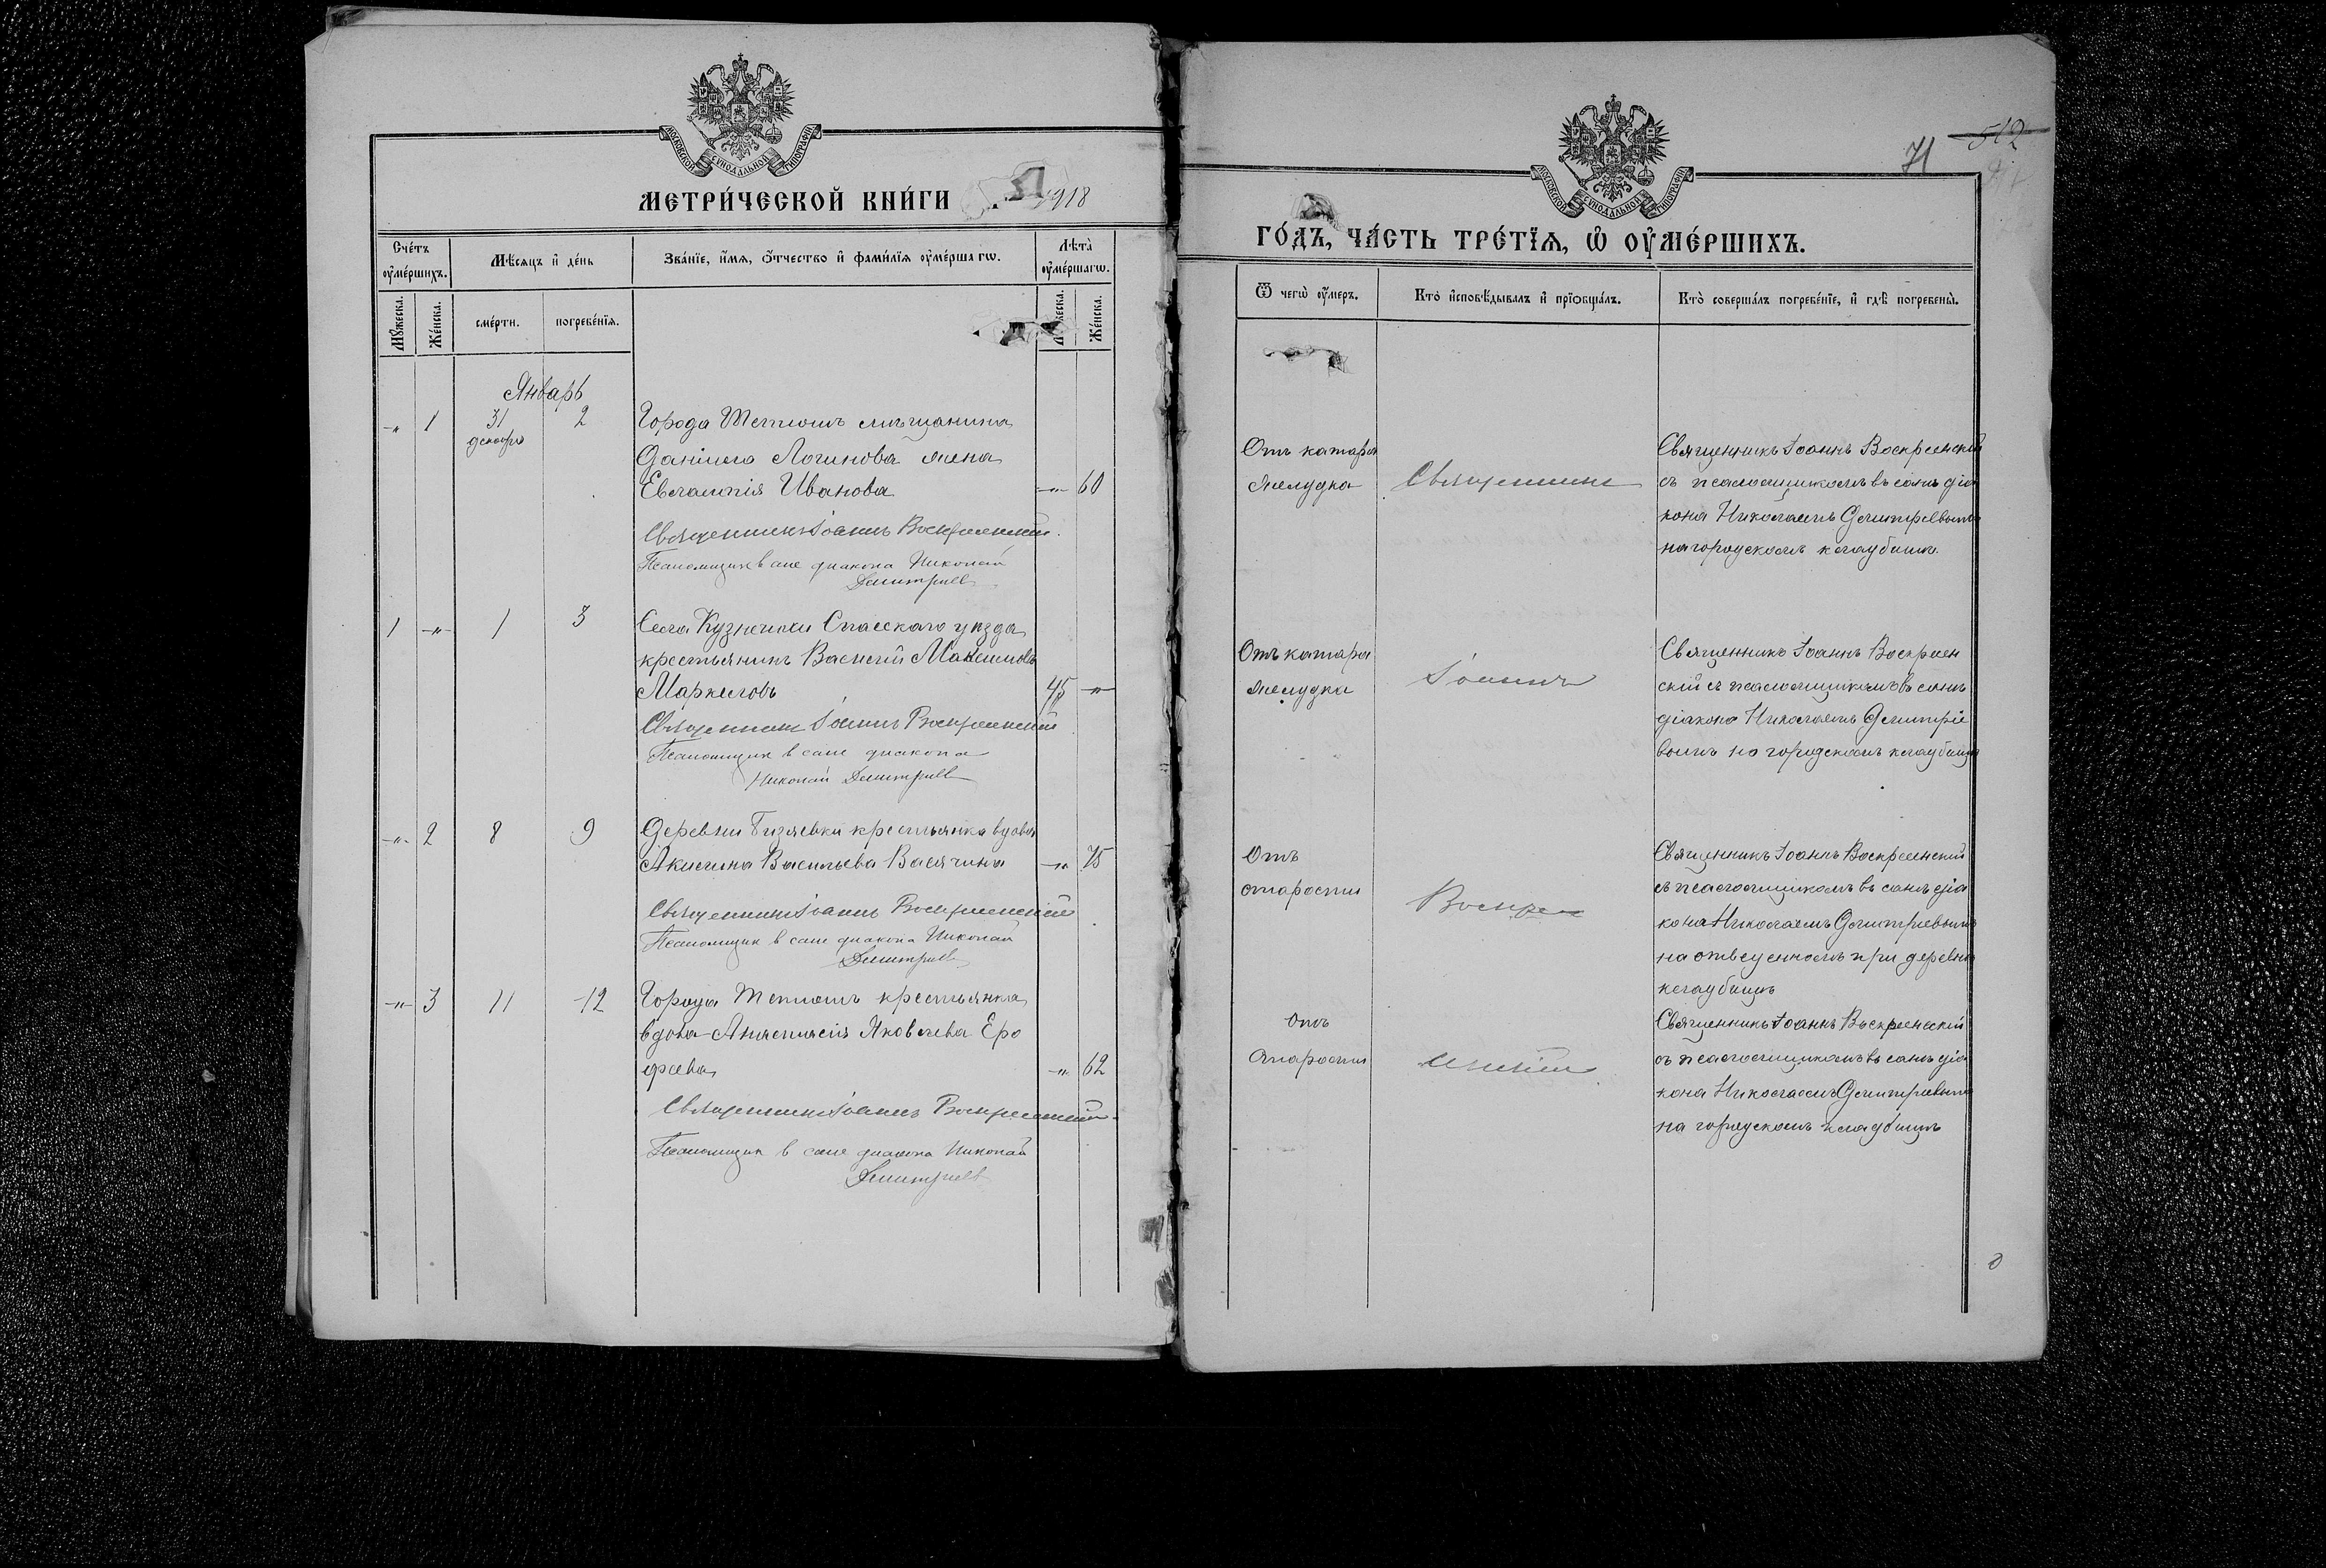 МОСКОВСКОЙ СѴНОДАЛЬНОЙ ТИПОГРАФІИ
МЕТРИ́ЧЕСКОЙ КНИ́ГИ 1918
Сче́тъ ᲂу҆ме́ршихъ.
Мѣ́сяцъ и҆ де́нь
Зва́нїе, и҆́мя, ѻ҆́тчество и҆ фами́лїя ᲂу҆ме́ршагѡ.
Лѣ́та ᲂу҆ме́ршагѡ.
Мꙋ́жеска.
Же́нска.
сме́рти.
погребе́нїя.
Же́нска.
Январь
-„- 1 31 декабря 2 Города Тетюшъ мѣщанина
Даніила Логинова жена
Евлампія Иванова -„- 60
Священникъ Іоаннъ Воскресенскій.
Псаломщик в сане диакона Николай
Димитриев
1 -„- 1 3 Села Кузнечихи Спасскаго уѣзда
крестьянинъ Василій Максимовъ
Маркеловъ 45 -„-
Священник Іоаннъ Воскресенскій
Псаломщик в сане диакона
Николай Димитриев
-„- 2 8 9 Деревни Бизяевки крестьянка вдова
Акилина Васильева Васячина -„- 75
Священник Іоаннъ Воскресенскій
Псаломщик в сане диакона Николай
Димитриев
-„- 3 11 12 Города Тетюшъ крестьянка
вдова Анастасія Яковлева Еро
феева -„- 62
Священник Іоаннъ Воскресенскій
Псаломщик в сане диакона Николай
Димитриев
71 512
МОСКОВСКОЙ СѴНОДАЛЬНОЙ ТИПОГРАФІИ
ГО́ДЪ, ЧА́СТЬ ТРЕ́ТЇѦ, Ѡ҆ ОУ҆МЕ́РШИХЪ.
Ѿ чегѡ̀ ᲂу҆́меръ.
Кто̀ и҆сповѣ́дывалъ и҆ прїѡбща́лъ.
Кто̀ соверша́лъ погребе́нїе, и҆ гдѣ̀ погребены̀.
Отъ катара
желудка
Священник
Священникъ Іоаннъ Воскресенскій
съ псаломщикомъ въ санѣ діа
кона Николаемъ Димитревымъ
на городскомъ кладбищѣ.
Отъ катара
желудка
Іоаннъ
Священникъ Іоаннъ Воскресен
скій съ псаломщикомъ въ санѣ
діакона Николаемъ Димитріе
вымъ на городскомъ кладбищѣ
Отъ
старости
Воскре
Священникъ Іоаннъ Воскресенскій
съ псаломщикомъ въ санѣ діа
кона Николаемъ Димитриевымъ
на отведенномъ при деревнѣ
кладбищѣ
Отъ
старости
сенскій
Священникъ Іоаннъ Воскресенскій
съ псаломщикомъ въ санѣ діа
кона Николаемъ Димитриевымъ
на городскомъ кладбищѣ